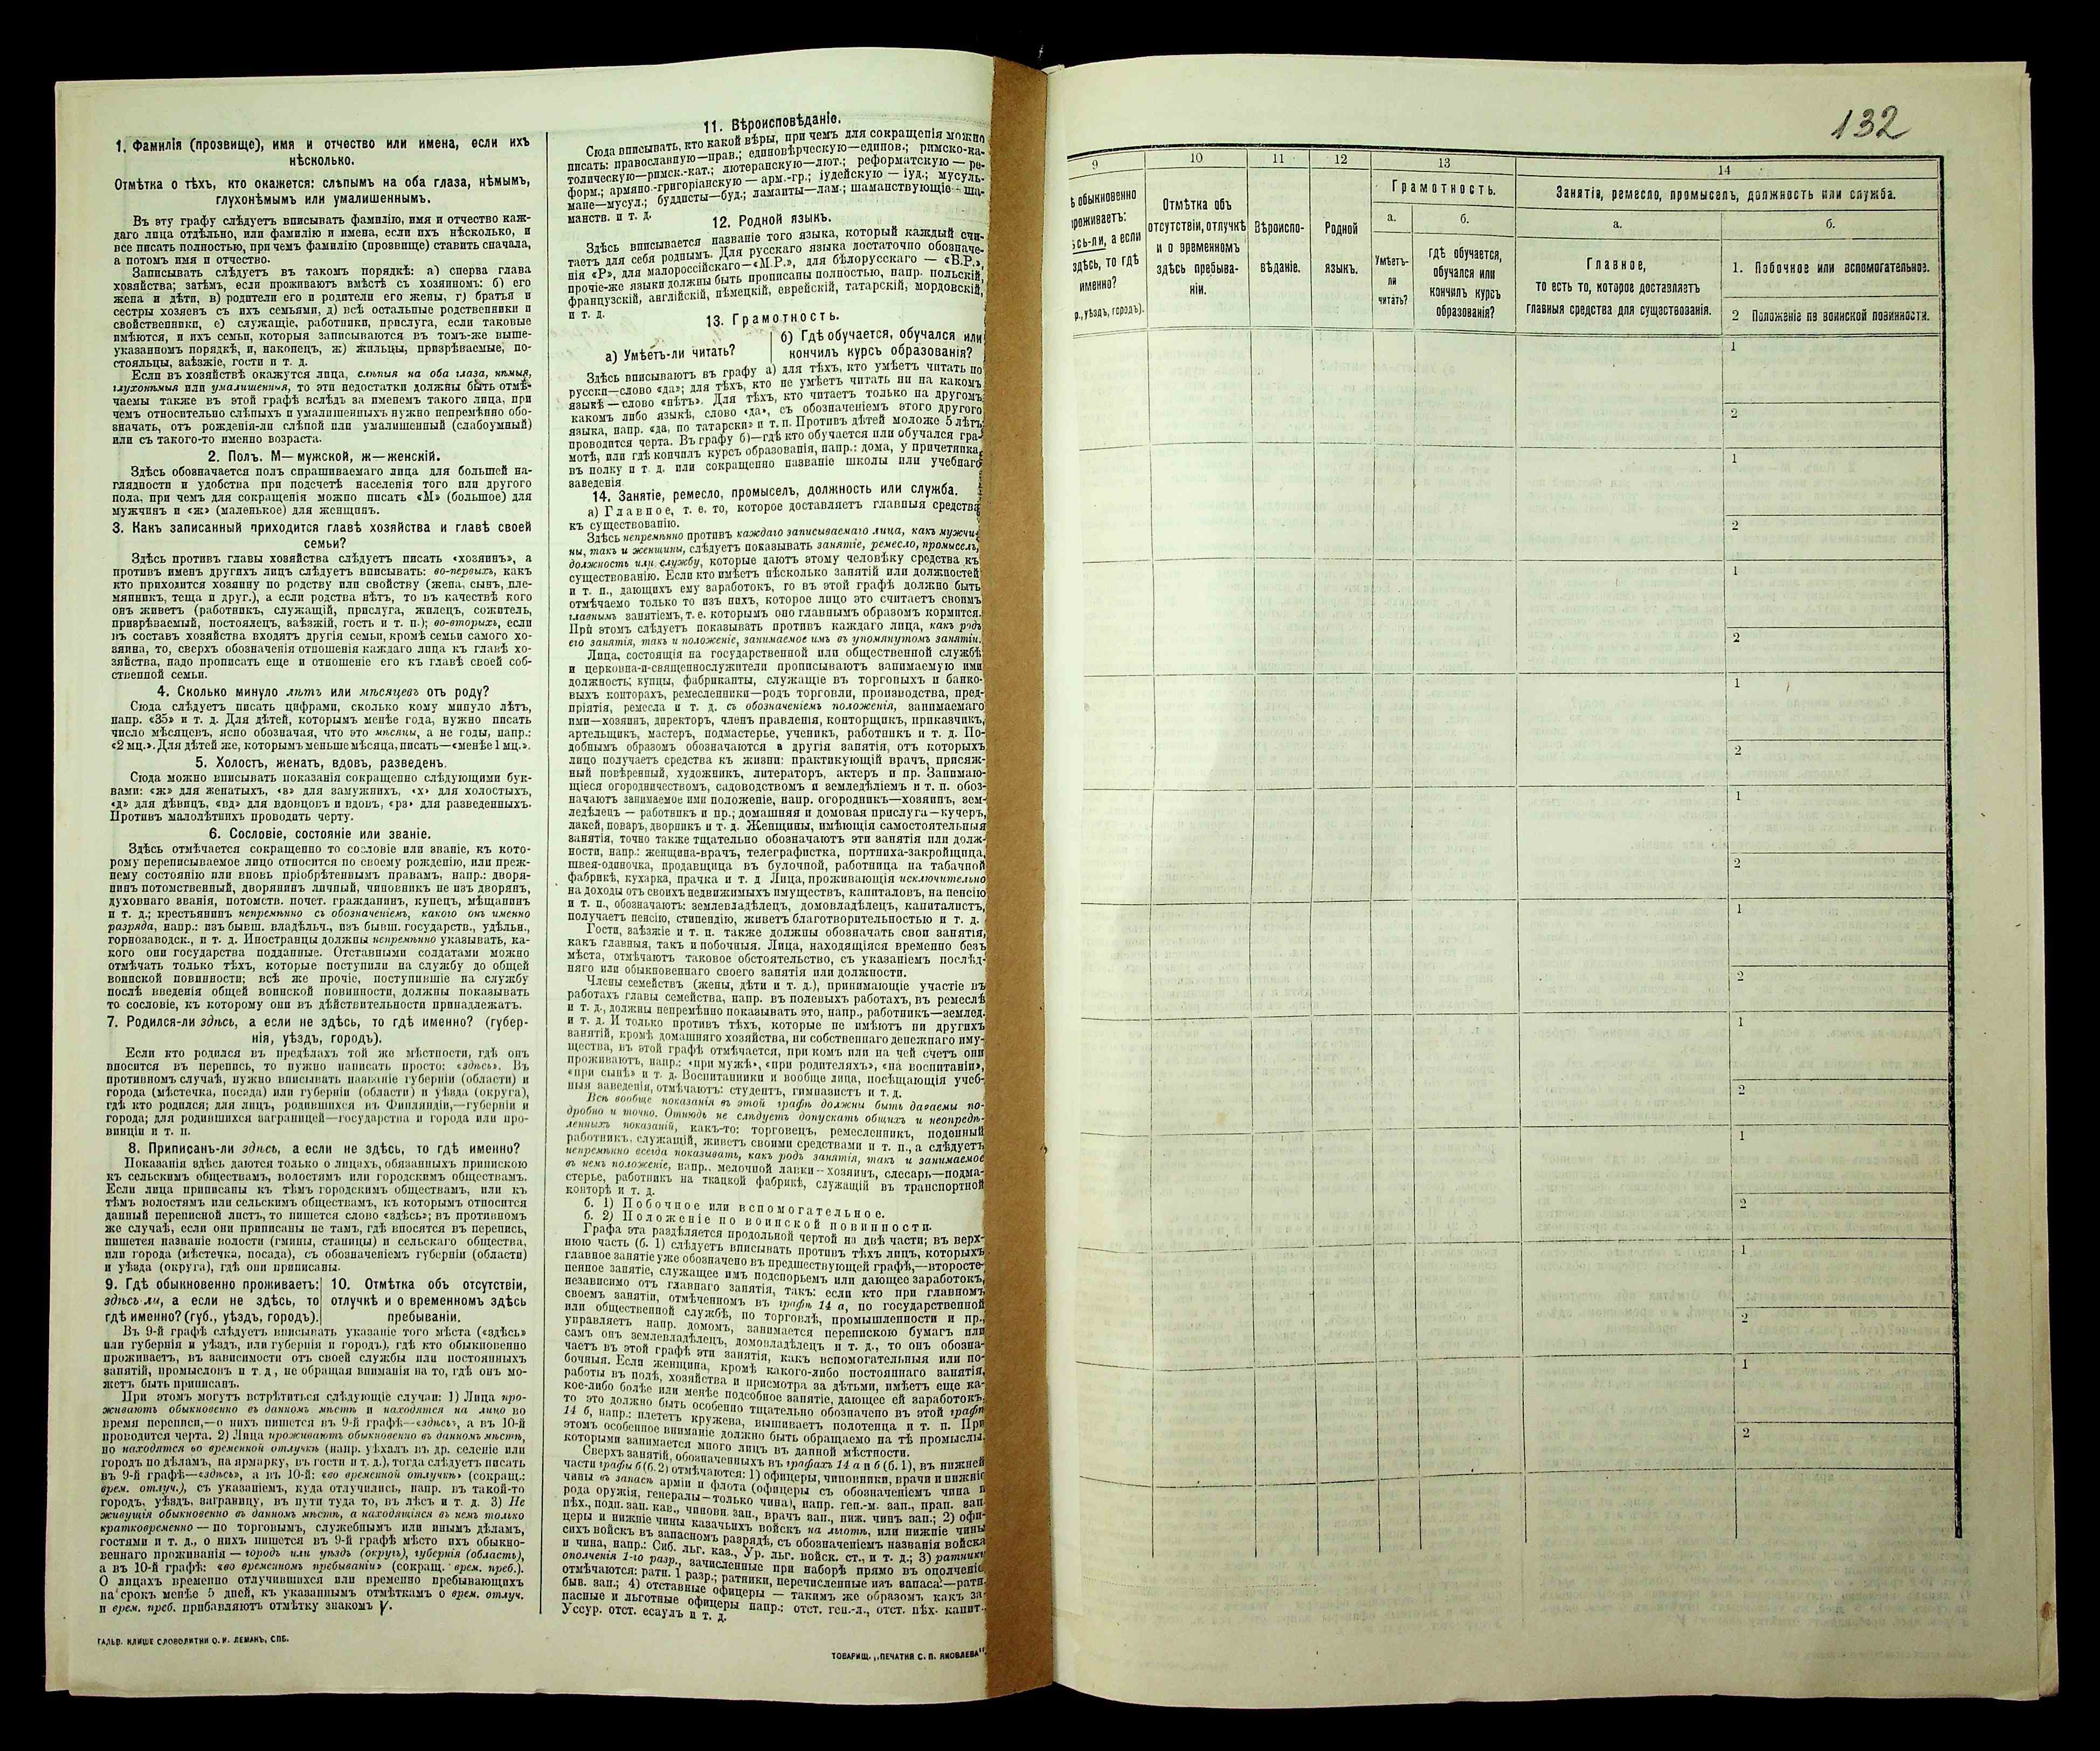 1. Фамилія (прозвище), имя и отчество или имена, если ихъ
нѣсколько.
Отмѣтка о тѣхъ, кто окажется: слѣпымъ на оба глаза, нѣмымъ,
глухонѣмымъ или умалишеннымъ.
Въ эту графу слѣдуетъ вписывать фамилію, имя и отчество каж-
даго лица отдѣльно, или фамилію и имена, если ихъ нѣсколько, и
все писать полностью, при чемъ фамилію (прозвище) ставить сначала,
а потомъ имя и отчество.
Записывать слѣдуетъ въ такомъ порядкѣ: а) сперва глава
хозяйства; затѣмъ, если проживаютъ вмѣстѣ съ хозяиномъ: б) его
жена и дѣти, в) родители его и родители его жены, г) братья и
сестры хозяевъ съ ихъ семьями, д) всѣ остальные родственники и
свойственники, е) служащіе, работники, прислуга, если таковые
имѣются, и ихъ семьи, которыя записываются въ томъ-же выше-
указанномъ порядкѣ, и, наконецъ, ж) жильцы, призрѣваемые, по-
стояльцы, заѣзжіе, гости и т. д.
Если въ хозяйствѣ окажутся лица, слѣпыя на оба глаза, нѣмыя,
глухонѣмыя или умалишенныя, то эти недостатки должны быть отмѣ-
чаемы также въ этой графѣ вслѣдъ за именемъ такого лица, при
чемъ относительно слѣпыхъ и умалишенныхъ нужно непремѣнно обо-
значать, отъ рожденія-ли слѣпой или умалишенный (слабоумный)
или съ такого-то именно возраста.
2. Полъ. М—мужской, ж—женскій.
Здѣсь обозначается полъ спрашиваемаго лица для большей на-
глядности и удобства при подсчетѣ населенія того или другого
пола, при чемъ для сокращенія можно писать «М» (большое) для
мужчинъ и «ж» (маленькое) для женщинъ.
3. Какъ записанный приходится главѣ хозяйства и главѣ своей
семьи?
Здѣсь противъ главы хозяйства слѣдуетъ писать «хозяинъ», а
противъ именъ другихъ лицъ слѣдуетъ вписывать: во-первыхъ, какъ
кто приходится хозяину по родству или свойству (жена, сынъ, пле-
мянникъ, теща и друг.), а если родства нѣтъ, то въ качествѣ кого
онъ живетъ (работникъ, служащій, прислуга, жилецъ, сожитель,
призрѣваемый, постоялецъ, заѣзжій, гость и т. п.); во-вторыхъ, если
въ составъ хозяйства входятъ другія семьи, кромѣ семьи самого хо-
зяина, то, сверхъ обозначенія отношенія каждаго лица къ главѣ хо-
зяйства, надо прописать еще и отношеніе его къ главѣ своей соб-
ственной семьи.
4. Сколько минуло лѣтъ или мѣсяцевъ отъ роду?
Сюда слѣдуетъ писать цифрами, сколько кому минуло лѣтъ,
напр. «35» и т. д. Для дѣтей, которымъ менѣе года, нужно писать
число мѣсяцевъ, ясно обозначая, что это мѣсяцы, а не годы, напр.:
«2 мц.». Для дѣтей же, которымъ меньше мѣсяца, писать—«менѣе 1 мц.».
5. Холостъ, женатъ, вдовъ, разведенъ.
Сюда можно вписывать показанія сокращенно слѣдующими бук-
вами: «ж» для женатыхъ, «з» для замужнихъ, «х» для холостыхъ,
«д» для дѣвицъ, «вд» для вдовцовъ и вдовъ, «рз» для разведенныхъ.
Противъ малолѣтнихъ проводить черту.
6. Сословіе, состояніе или званіе.
Здѣсь отмѣчается сокращенно то сословіе или званіе, къ кото-
рому переписываемое лицо относится по своему рожденію, или преж-
нему состоянію или вновь пріобрѣтеннымъ правамъ, напр.: дворя-
нинъ потомственный, дворянинъ личный, чиновникъ не изъ дворянъ,
духовнаго званія, потомств. почет. гражданинъ, купецъ, мѣщанинъ
и т. д.; крестьянинъ непремѣнно съ обозначеніемъ, какого онъ именно
разряда, напр.: изъ бывш. владѣльч., изъ бывш. государств., удѣльн.,
горнозаводск., и т. д. Иностранцы должны непремѣнно указывать, ка-
кого они государства подданные. Отставными солдатами можно
отмѣчать только тѣхъ, которые поступили на службу до общей
воинской повинности; всѣ же прочіе, поступившіе на службу
послѣ введенія общей воинской повинности, должны показывать
то сословіе, къ которому они въ дѣйствительности принадлежатъ.
7. Родился-ли здѣсь, а если не здѣсь, то гдѣ именно? (губер-
нія, уѣздъ, городъ).
Если кто родился въ предѣлахъ той же мѣстности, гдѣ онъ
вносится въ перепись, то нужно написать просто: «здѣсь». Въ
противномъ случаѣ, нужно вписывать названіе губерніи (области) и
города (мѣстечка, посада) или губерніи (области) и уѣзда (округа),
гдѣ кто родился; для лицъ, родившихся въ Финляндіи,—губерніи и
города; для родившихся заграницей—государства и города или про-
винціи и т. п.
8. Приписанъ-ли здѣсь, а если не здѣсь, то гдѣ именно?
Показанія здѣсь даются только о лицахъ, обязанныхъ припискою
къ сельскимъ обществамъ, волостямъ или городскимъ обществамъ.
Если лица приписаны къ тѣмъ городскимъ обществамъ, или къ
тѣмъ волостямъ или сельскимъ обществамъ, къ которымъ относится
данный переписной листъ, то пишется слово «здѣсь»; въ противномъ
же случаѣ, если они приписаны не тамъ, гдѣ вносятся въ перепись,
пишется названіе волости (гмины, станицы) и сельскаго общества,
или города (мѣстечка, посада), съ обозначеніемъ губерніи (области)
и уѣзда (округа), гдѣ они приписаны.
9. Гдѣ обыкновенно проживаетъ:
здѣсь ли, а если не здѣсь, то
гдѣ именно? (губ., уѣздъ, городъ).
10. Отмѣтка объ отсутствіи,
отлучкѣ и о временномъ здѣсь
пребываніи.
Въ 9-й графѣ слѣдуетъ вписывать указаніе того мѣста («здѣсь»
или губернія и уѣздъ, или губернія и городъ), гдѣ кто обыкновенно
проживаетъ, въ зависимости отъ своей службы или постоянныхъ
занятій, промысловъ и т. д, не обращая вниманія на то, гдѣ онъ мо-
жетъ быть приписанъ.
При этомъ могутъ встрѣтиться слѣдующіе случаи: 1) Лица про-
живаютъ обыкновенно въ данномъ мѣстѣ и находятся на лицо во
время переписи,—о нихъ пишется въ 9-й графѣ—«здѣсь», а въ 10-й
проводится черта. 2) Лица проживаютъ обыкновенно въ данномъ мѣстѣ,
но находятся во временной отлучкѣ (напр. уѣхалъ въ др. селеніе или
городъ по дѣламъ, на ярмарку, въ гости и т. д.), тогда слѣдуетъ писать
въ 9-й графѣ—«здѣсь», а въ 10-й: «во временной отлучкѣ» (сокращ.:
врем. отлуч.), съ указаніемъ, куда отлучились, напр. въ такой-то
городъ, уѣздъ, заграницу, въ пути туда то, въ лѣсъ и т. д. 3) Не
живущія обыкновенно въ данномъ мѣстѣ, а находящіяся въ немъ только
кратковременно — по торговымъ, служебнымъ или инымъ дѣламъ,
гостями и т. д., о нихъ пишется въ 9-й графѣ мѣсто ихъ обыкно-
веннаго проживанія — городъ или уѣздъ (округъ), губернія (область),
а въ 10-й графѣ: «во временномъ пребываніи» (сокращ. врем. преб.).
О лицахъ временно отлучившихся или временно пребывающихъ
на срокъ менѣе 5 дней, къ указаннымъ отмѣткамъ о врем. отлуч.
и врем. преб. прибавляютъ отмѣтку знакомъ V.
ГАЛЬВ. КЛИШЕ СЛОВОЛИТНИ О. И. ЛЕМАНЪ, СПБ.
11. Вѣроисповѣданіе.
Сюда вписывать, кто какой вѣры, при чемъ для сокращенія можно
писать: православную—прав.; единовѣрческую—единов.; римско-ка-
толическую—римск.-кат.; лютеранскую—лют.; реформатскую — ре-
форм.; армяно-григоріанскую — арм.-гр.; іудейскую — іуд.; мусуль-
мане—мусул.; буддисты—буд.; ламаиты—лам.; шаманствующіе—ша-
манств. и т. д.
12. Родной языкъ.
Здѣсь вписывается названіе того языка, который каждый счи-
таетъ для себя роднымъ. Для русскаго языка достаточно обозначе-
нія «Р», для малороссійскаго—«М.Р.», для бѣлорусскаго — «Б.Р.»,
прочіе-же языки должны быть прописаны полностью, напр. польскій,
французскій, англійскій, нѣмецкій, еврейскій, татарскій, мордовскій,
и т. д.
13. Грамотность.
а) Умѣетъ-ли читать?
б) Гдѣ обучается, обучался или
кончилъ курсъ образованія?
Здѣсь вписываютъ въ графу а) для тѣхъ, кто умѣетъ читать по
русски—слово «да»; для тѣхъ, кто не умѣетъ читать ни на какомъ
языкѣ—слово «нѣтъ». Для тѣхъ, кто читаетъ только на другомъ
какомъ либо языкѣ, слово «да», съ обозначеніемъ этого другого
языка, напр. «да, по татарски» и т. п. Противъ дѣтей моложе 5 лѣтъ
проводится черта. Въ графу б)—гдѣ кто обучается или обучался гра-
мотѣ, или гдѣ кончилъ курсъ образованія, напр.: дома, у причетника,
въ полку и т. д. или сокращенно названіе школы или учебнаго
заведенія
14. Занятіе, ремесло, промыселъ, должность или служба.
а) Главное, т. е. то, которое доставляетъ главныя средства
къ существованію.
Здѣсь непремѣнно противъ каждаго записываемаго лица, какъ мужчи-
ны, такъ и женщины, слѣдуетъ показывать занятіе, ремесло, промыселъ,
должность или службу, которые даютъ этому человѣку средства къ
существованію. Если кто имѣетъ нѣсколько занятій или должностей
и т. п., дающихъ ему заработокъ, то въ этой графѣ должно быть
отмѣчаемо только то изъ нихъ, которое лицо это считаетъ своимъ
главнымъ занятіемъ, т. е. которымъ оно главнымъ образомъ кормится.
При этомъ слѣдуетъ показывать противъ каждаго лица, какъ родъ
его занятія, такъ и положеніе, занимаемое имъ въ упомянутомъ занятіи.
Лица, состоящія на государственной или общественной службѣ
и церковно-и-священнослужители прописываютъ занимаемую ими
должность; купцы, фабриканты, служащіе въ торговыхъ и банко-
выхъ конторахъ, ремесленники—родъ торговли, производства, пред-
пріятія, ремесла и т. д. съ обозначеніемъ положенія, занимаемаго
ими—хозяинъ, директоръ, членъ правленія, конторщикъ, приказчикъ,
артельщикъ, мастеръ, подмастерье, ученикъ, работникъ и т. д. По-
добнымъ образомъ обозначаются и другія занятія, отъ которыхъ
лицо получаетъ средства къ жизни: практикующій врачъ, присяж-
ный повѣренный, художникъ, литераторъ, актеръ и пр. Занимаю-
щіеся огородничествомъ, садоводствомъ и земледѣліемъ и т. п. обоз-
начаютъ занимаемое ими положеніе, напр. огородникъ—хозяинъ, зем-
ледѣлецъ — работникъ и пр.; домашняя и домовая прислуга—кучеръ,
лакей, поваръ, дворникъ и т. д. Женщины, имѣющія самостоятельныя
занятія, точно также тщательно обозначаютъ эти занятія или долж-
ности, напр.: женщина-врачъ, телеграфистка, портниха-закройщица,
швея-одиночка, продавщица въ булочной, работница на табачной
фабрикѣ, кухарка, прачка и т. д Лица, проживающія исключительно
на доходы отъ своихъ недвижимыхъ имуществъ, капиталовъ, на пенсію
и т. п., обозначаютъ: землевладѣлецъ, домовладѣлецъ, капиталистъ,
получаетъ пенсію, стипендію, живетъ благотворительностью и т. д.
Гости, заѣзжіе и т. п. также должны обозначать свои занятія,
какъ главныя, такъ и побочныя. Лица, находящіяся временно безъ
мѣста, отмѣчаютъ таковое обстоятельство, съ указаніемъ послѣд-
няго или обыкновеннаго своего занятія или должности.
Члены семействъ (жены, дѣти и т. д.), принимающіе участіе въ
работахъ главы семейства, напр. въ полевыхъ работахъ, въ ремеслѣ
и т. д., должны непремѣнно показывать это, напр., работникъ—землед.
и т. д. И только противъ тѣхъ, которые не имѣютъ ни другихъ
занятій, кромѣ домашняго хозяйства, ни собственнаго денежнаго иму-
щества, въ этой графѣ отмѣчается, при комъ или на чей счетъ они
проживаютъ, напр.: «при мужѣ», «при родителяхъ», «на воспитаніи»,
«при сынѣ» и т. д. Воспитанники и вообще лица, посѣщающія учеб-
ныя заведенія, отмѣчаютъ: студентъ, гимназистъ и т. д.
Всѣ вообще показанія въ этой графѣ должны быть даваемы по-
дробно и точно. Отнюдь не слѣдуетъ допускать общихъ и неопредѣ-
ленныхъ показаній, какъ-то: торговецъ, ремесленникъ, поденный
работникъ, служащій, живетъ своими средствами и т. п., а слѣдуетъ
непремѣнно всегда показывать, какъ родъ занятія, такъ и занимаемое
въ немъ положеніе, напр., мелочной лавки—хозяинъ, слесарь—подма-
стерье, работникъ на ткацкой фабрикѣ, служащій въ транспортной
конторѣ и т. д.
б. 1) Побочное или вспомогательное.
б. 2) Положеніе по воинской повинности.
Графа эта раздѣляется продольной чертой на двѣ части; въ верх-
нюю часть (б. 1) слѣдуетъ вписывать противъ тѣхъ лицъ, которыхъ
главное занятіе уже обозначено въ предшествующей графѣ,—второсте-
пенное занятіе, служащее имъ подспорьемъ или дающее заработокъ,
независимо отъ главнаго занятія, такъ: если кто при главномъ
своемъ занятіи, отмѣченномъ въ графѣ 14 а, по государственной
или общественной службѣ, по торговлѣ, промышленности и пр.,
управляетъ напр. домомъ, занимается перепискою бумагъ или
самъ онъ землевладѣлецъ, домовладѣлецъ и т. д., то онъ обозна-
чаетъ въ этой графѣ эти занятія, какъ вспомогательныя или по-
бочныя. Если женщина, кромѣ какого-либо постояннаго занятія,
работы въ полѣ, хозяйства и присмотра за дѣтьми, имѣетъ еще ка-
кое-либо болѣе или менѣе подсобное занятіе, дающее ей заработокъ,
то это должно быть особенно тщательно обозначено въ этой графѣ
14 б, напр.: плететъ кружева, вышиваетъ полотенца и т. п. При
этомъ особенное вниманіе должно быть обращаемо на тѣ промыслы,
которыми занимается много лицъ въ данной мѣстности.
Сверхъ занятій, обозначенныхъ въ графахъ 14 а и б (б. 1), въ нижней
части графы б (б. 2) отмѣчаются: 1) офицеры, чиновники, врачи и нижніе
чины въ запасѣ арміи и флота (офицеры съ обозначеніемъ чина и
рода оружія, генералы—только чина), напр. ген.-м. зап., прап. зап.
пѣх., подп. зап. кав., чиновн. зап., врачъ зап., ниж. чинъ зап.; 2) офи-
церы и нижніе чины казачьихъ войскъ на льготѣ, или нижніе чины
сихъ войскъ въ запасномъ разрядѣ, съ обозначеніемъ названія войска
и чина, напр.: Сиб. льг. каз., Ур. льг. войск. ст., и т. д.; 3) ратники
ополченія 1-го разр., зачисленные при наборѣ прямо въ ополченіе,
отмѣчаются: ратн. 1 разр.; ратники, перечисленные изъ запаса:—ратн.
быв. зап.; 4) отставные офицеры — такимъ же образомъ какъ за-
пасные и льготные офицеры напр.: отст. ген.-л., отст. пѣх. капит.,
Уссур. отст. есаулъ и т. д.
ТОВАРИЩ. „ПЕЧАТНЯ С. П. ЯКОВЛЕВА“
132
9
10
11
12
13
14
ѣ обыкновенно
проживаетъ:
сь-ли, а если
здѣсь, то гдѣ
именно?
р., уѣздъ, городъ).
Отмѣтка объ
отсутствіи, отлучкѣ
и о временномъ
здѣсь пребыва-
ніи.
Вѣроиспо-
вѣданіе.
Родной
языкъ.
Грамотность.
а.
Умѣетъ-
ли
читать?
б.
гдѣ обучается,
обучался или
кончилъ курсъ
образованія?
Занятія, ремесло, промыселъ, должность или служба.
а.
Главное,
то есть то, которое доставляетъ
главныя средства для существованія.
б.
1. Побочное или вспомогательное.
2 Положеніе по воинской повинности.
1
2
1
2
1
2
1
2
1
2
1
2
1
2
1
2
1
2
1
2